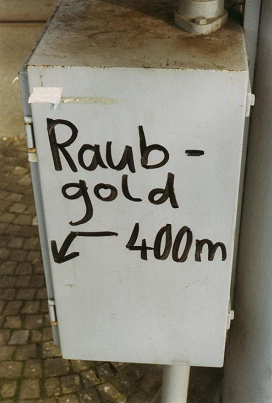 Raub-
gold
↙ 400m